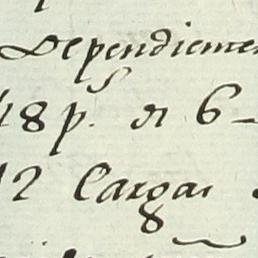 Dependiemen
18 p. di 6 -
12 Cargas